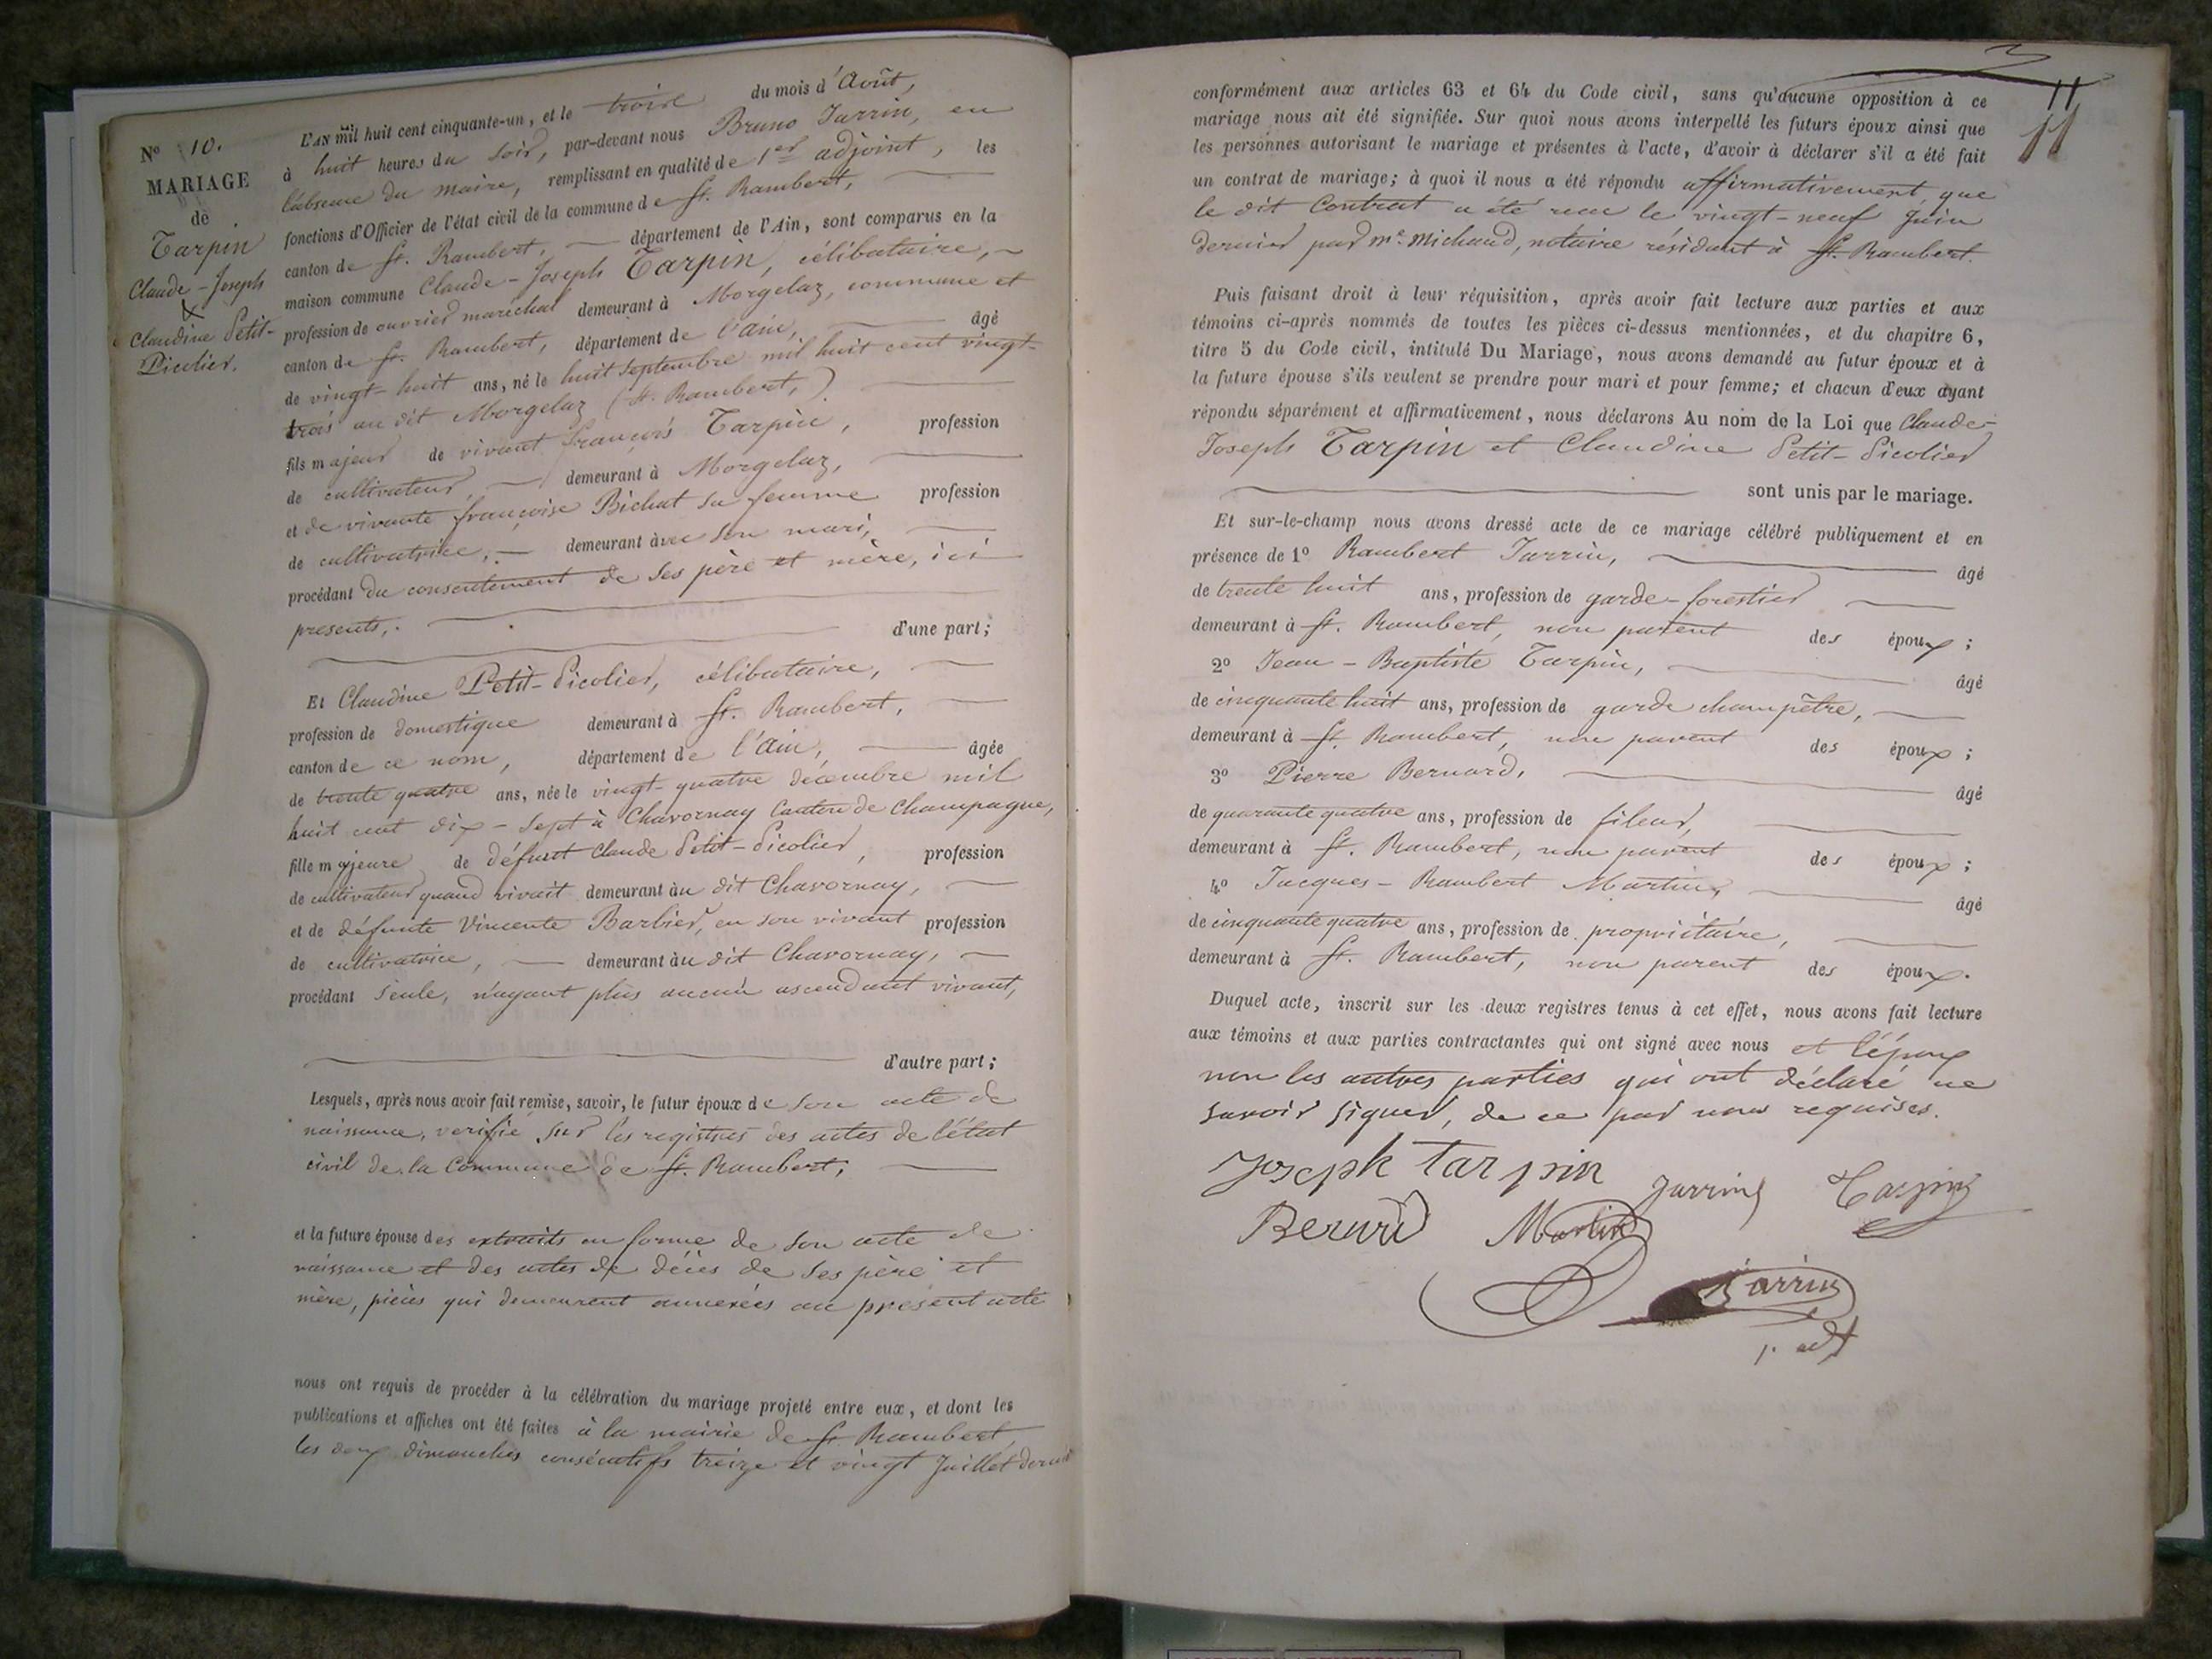 N° 10.
MARIAGE
de
Tarpin
Claude-Joseph
&
Claudine Petit-
Picolier.
L'AN mil huit cent cinquante-un, et le trois du mois d'Août,
à huit heures du soir, par-devant nous Bruno Jarrin, en
l'absence du maire, remplissant en qualité de 1er adjoint, les
fonctions d'Officier de l'état civil de la commune de St. Rambert,
canton de St. Rambert, département de l'Ain, sont comparus en la
maison commune Claude-Joseph Tarpin, célibataire,
profession de ouvrier maréchal demeurant à Morgelaz, commune et
canton de St. Rambert, département de l'ain, âgé
de vingt-huit ans, né le huit Septembre mil huit cent vingt-
trois au dit Morgelaz (St. Rambert,)
fils majeur de vivant françois Tarpin, profession
de cultivateur, demeurant à Morgelaz,
et de vivante françoise Bichat sa femme profession
de cultivatrice, demeurant avec son mari,
procédant du consentement de ses père et mère, ici
presents,.
d'une part;
Et Claudine Petit-Picolier, célibataire,
profession de domestique demeurant à St. Rambert,
canton de ce nom, département de l'ain, âgée
de trente quatre ans, née le vingt-quatre décembre mil
huit cent dix-sept à Chavornay Canton de Champagne,
fille majeure de défunt Claude Petit-Picolier, profession
de cultivateur quand vivait demeurant au dit Chavornay,
et de défunte Vincente Barbier, en son vivant profession
de cultivatrice, demeurant au dit Chavornay,
procédant seule, n'ayant plus aucun ascendant vivant,
d'autre part;
Lesquels, après nous avoir fait remise, savoir, le futur époux de son acte de
naissance, verifié sur les registres des actes de l'état
civil de la Commune de St. Rambert,
et la future épouse des extraits en forme de son acte de
naissance et des actes de décès de ses père et
mère, pièces qui demeurent annexées au présent acte
nous ont requis de procéder à la célébration du mariage projeté entre eux, et dont les
publications et affiches ont été faites à la mairie de St. Rambert,
les deux dimanches consécutifs treize et vingt Juillet dernier
11
11
conformément aux articles 63 et 64 du Code civil, sans qu'aucune opposition à ce
mariage nous ait été signifiée. Sur quoi nous avons interpellé les futurs époux ainsi que
les personnes autorisant le mariage et présentes à l'acte, d'avoir à déclarer s'il a été fait
un contrat de mariage; à quoi il nous a été répondu affirmativement, que
le dit Contrat a été recu le vingt-neuf Juin
dernier par Me. Michaud, notaire résidant à St. Rambert.
Puis faisant droit à leur réquisition, après avoir fait lecture aux parties et aux
témoins ci-après nommés de toutes les pièces ci-dessus mentionnées, et du chapitre 6,
titre 5 du Code civil, intitulé Du Mariage, nous avons demandé au futur époux et à
la future épouse s'ils veulent se prendre pour mari et pour femme; et chacun d'eux ayant
répondu séparément et affirmativement, nous déclarons Au nom de la Loi que Claude-
Joseph Tarpin et Claudine Petit-Picolier
sont unis par le mariage.
Et sur-le-champ nous avons dressé acte de ce mariage célébré publiquement et en
présence de 1° Rambert Jarrin, âgé
de trente huit ans, profession de garde-forestier
demeurant à St. Rambert, non parent des époux;
2° Jean-Baptiste Tarpin, âgé
de cinquante huit ans, profession de garde champêtre,
demeurant à St. Rambert, non parent des époux;
3° Pierre Bernard, âgé
de quarante quatre ans, profession de fileur,
demeurant à St. Rambert, non parent des époux;
4° Jacques-Rambert Martin, âgé
de cinquante quatre ans, profession de propriétaire,
demeurant à St. Rambert, non parent des époux.
Duquel acte, inscrit sur les deux registres tenus à cet effet, nous avons fait lecture
aux témoins et aux parties contractantes qui ont signé avec nous et l'époux
non les autres parties qui ont déclaré ne
savoir signer, de ce par nous requises.
Joseph Tarpin Jarrin Tarpin
Bernard Martin
B Jarrin
1. adt